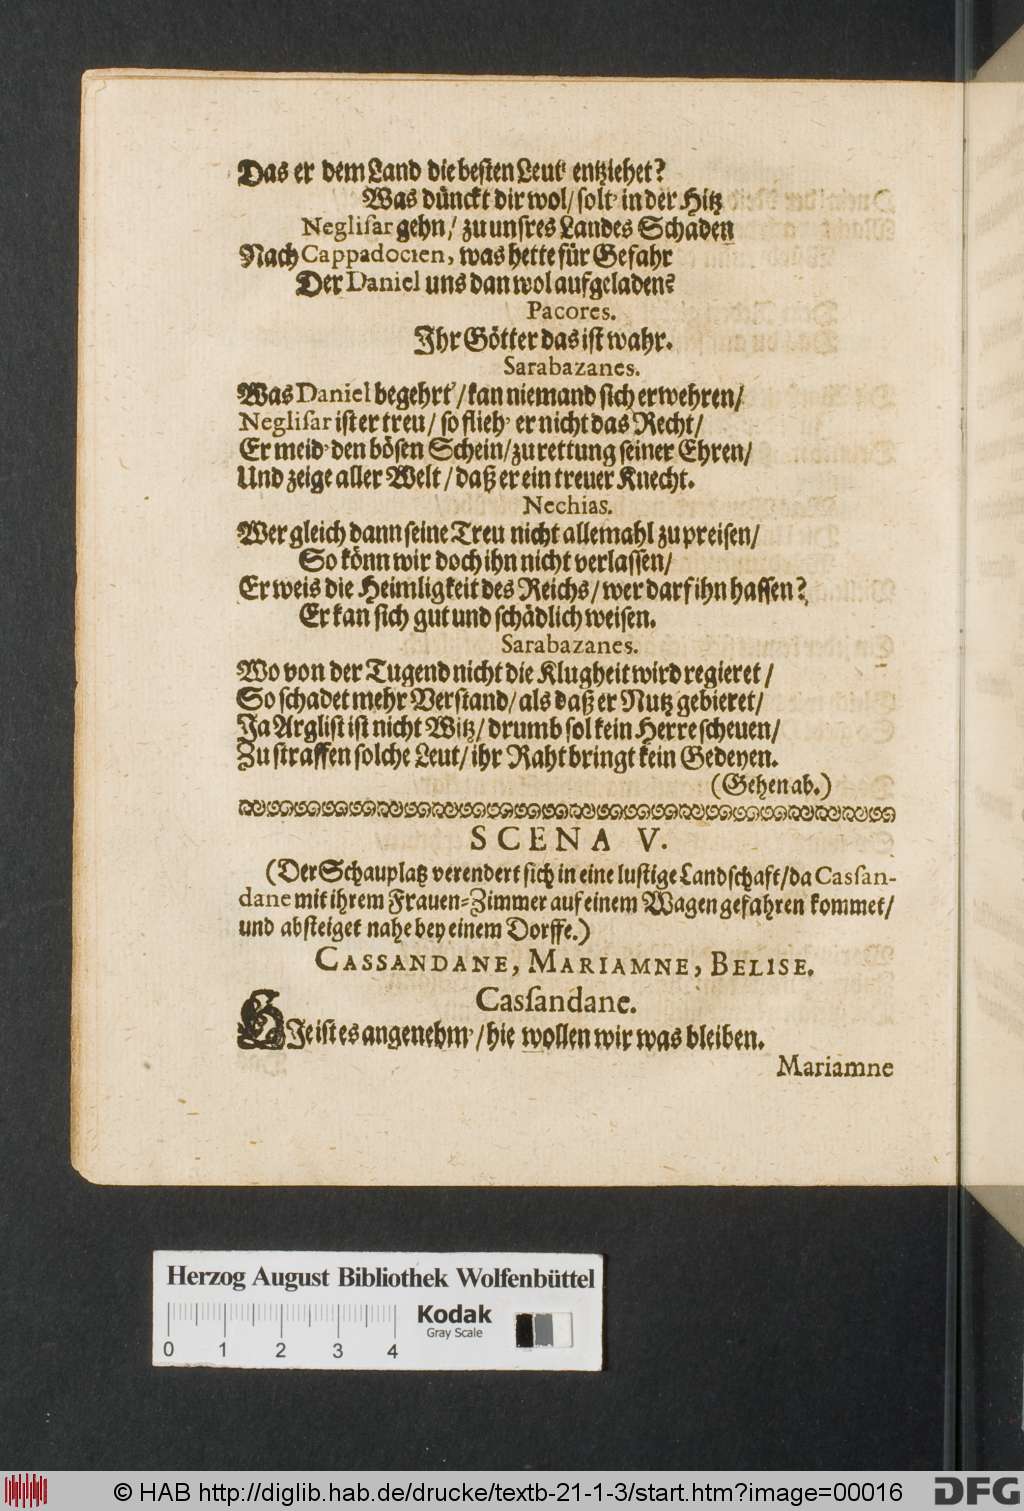 Das er dem Land die besten Leut' entziehet?
Was dünckt dir wol/ solt' in der Hitz
Neglisar gehn/ zu unsres Landes Schaden
Nach Cappadocien, was hette für Gefahr
Der Daniel uns dan wol aufgeladen?
Pacores.
Ihr Götter das ist wahr.
Sarabazanes.
Was Daniel begehrt'/ kan niemand sich erwehren/
Neglisar ist er treu/ so flieh' er nicht das Recht/
Er meid' den bösen Schein/ zu rettung seiner Ehren/
Und zeige aller Welt/ daß er ein treuer Knecht.
Nechias.
Wer gleich dann seine Treu nicht allemahl zu preisen/
So könn wir doch ihn nicht verlassen/
Er weis die Heimligkeit des Reichs/ wer darf ihn hassen?
Er kan sich gut und schädlich weisen.
Sarabazanes.
Wo von der Tugend nicht die Klugheit wird regieret/
So schadet mehr Verstand/ als daß er Nutz gebieret/
Ja Arglist ist nicht Witz/ drumb sol kein Herre scheuen/
Zu straffen solche Leut/ ihr Raht bringt kein Gedeyen.
(Gehen ab.)
SCENA V.
(Der Schauplatz verendert sich in eine lustige Landschaft/ da Cassan-
dane mit ihrem Frauen-Zimmer auf einem Wagen gefahren kommet/
und absteiget nahe bey einem Dorffe.)
CASSANDANE, MARIAMNE, BELISE.
Cassandane.
HIe ist es angenehm'/ hie wollen wir was bleiben.
Mariamne
Herzog August Bibliothek Wolfenbüttel
Kodak
Gray Scale
0 1 2 3 4
© HAB http://diglib.hab.de/drucke/textb-21-1-3/start.htm?image=00016
DFG